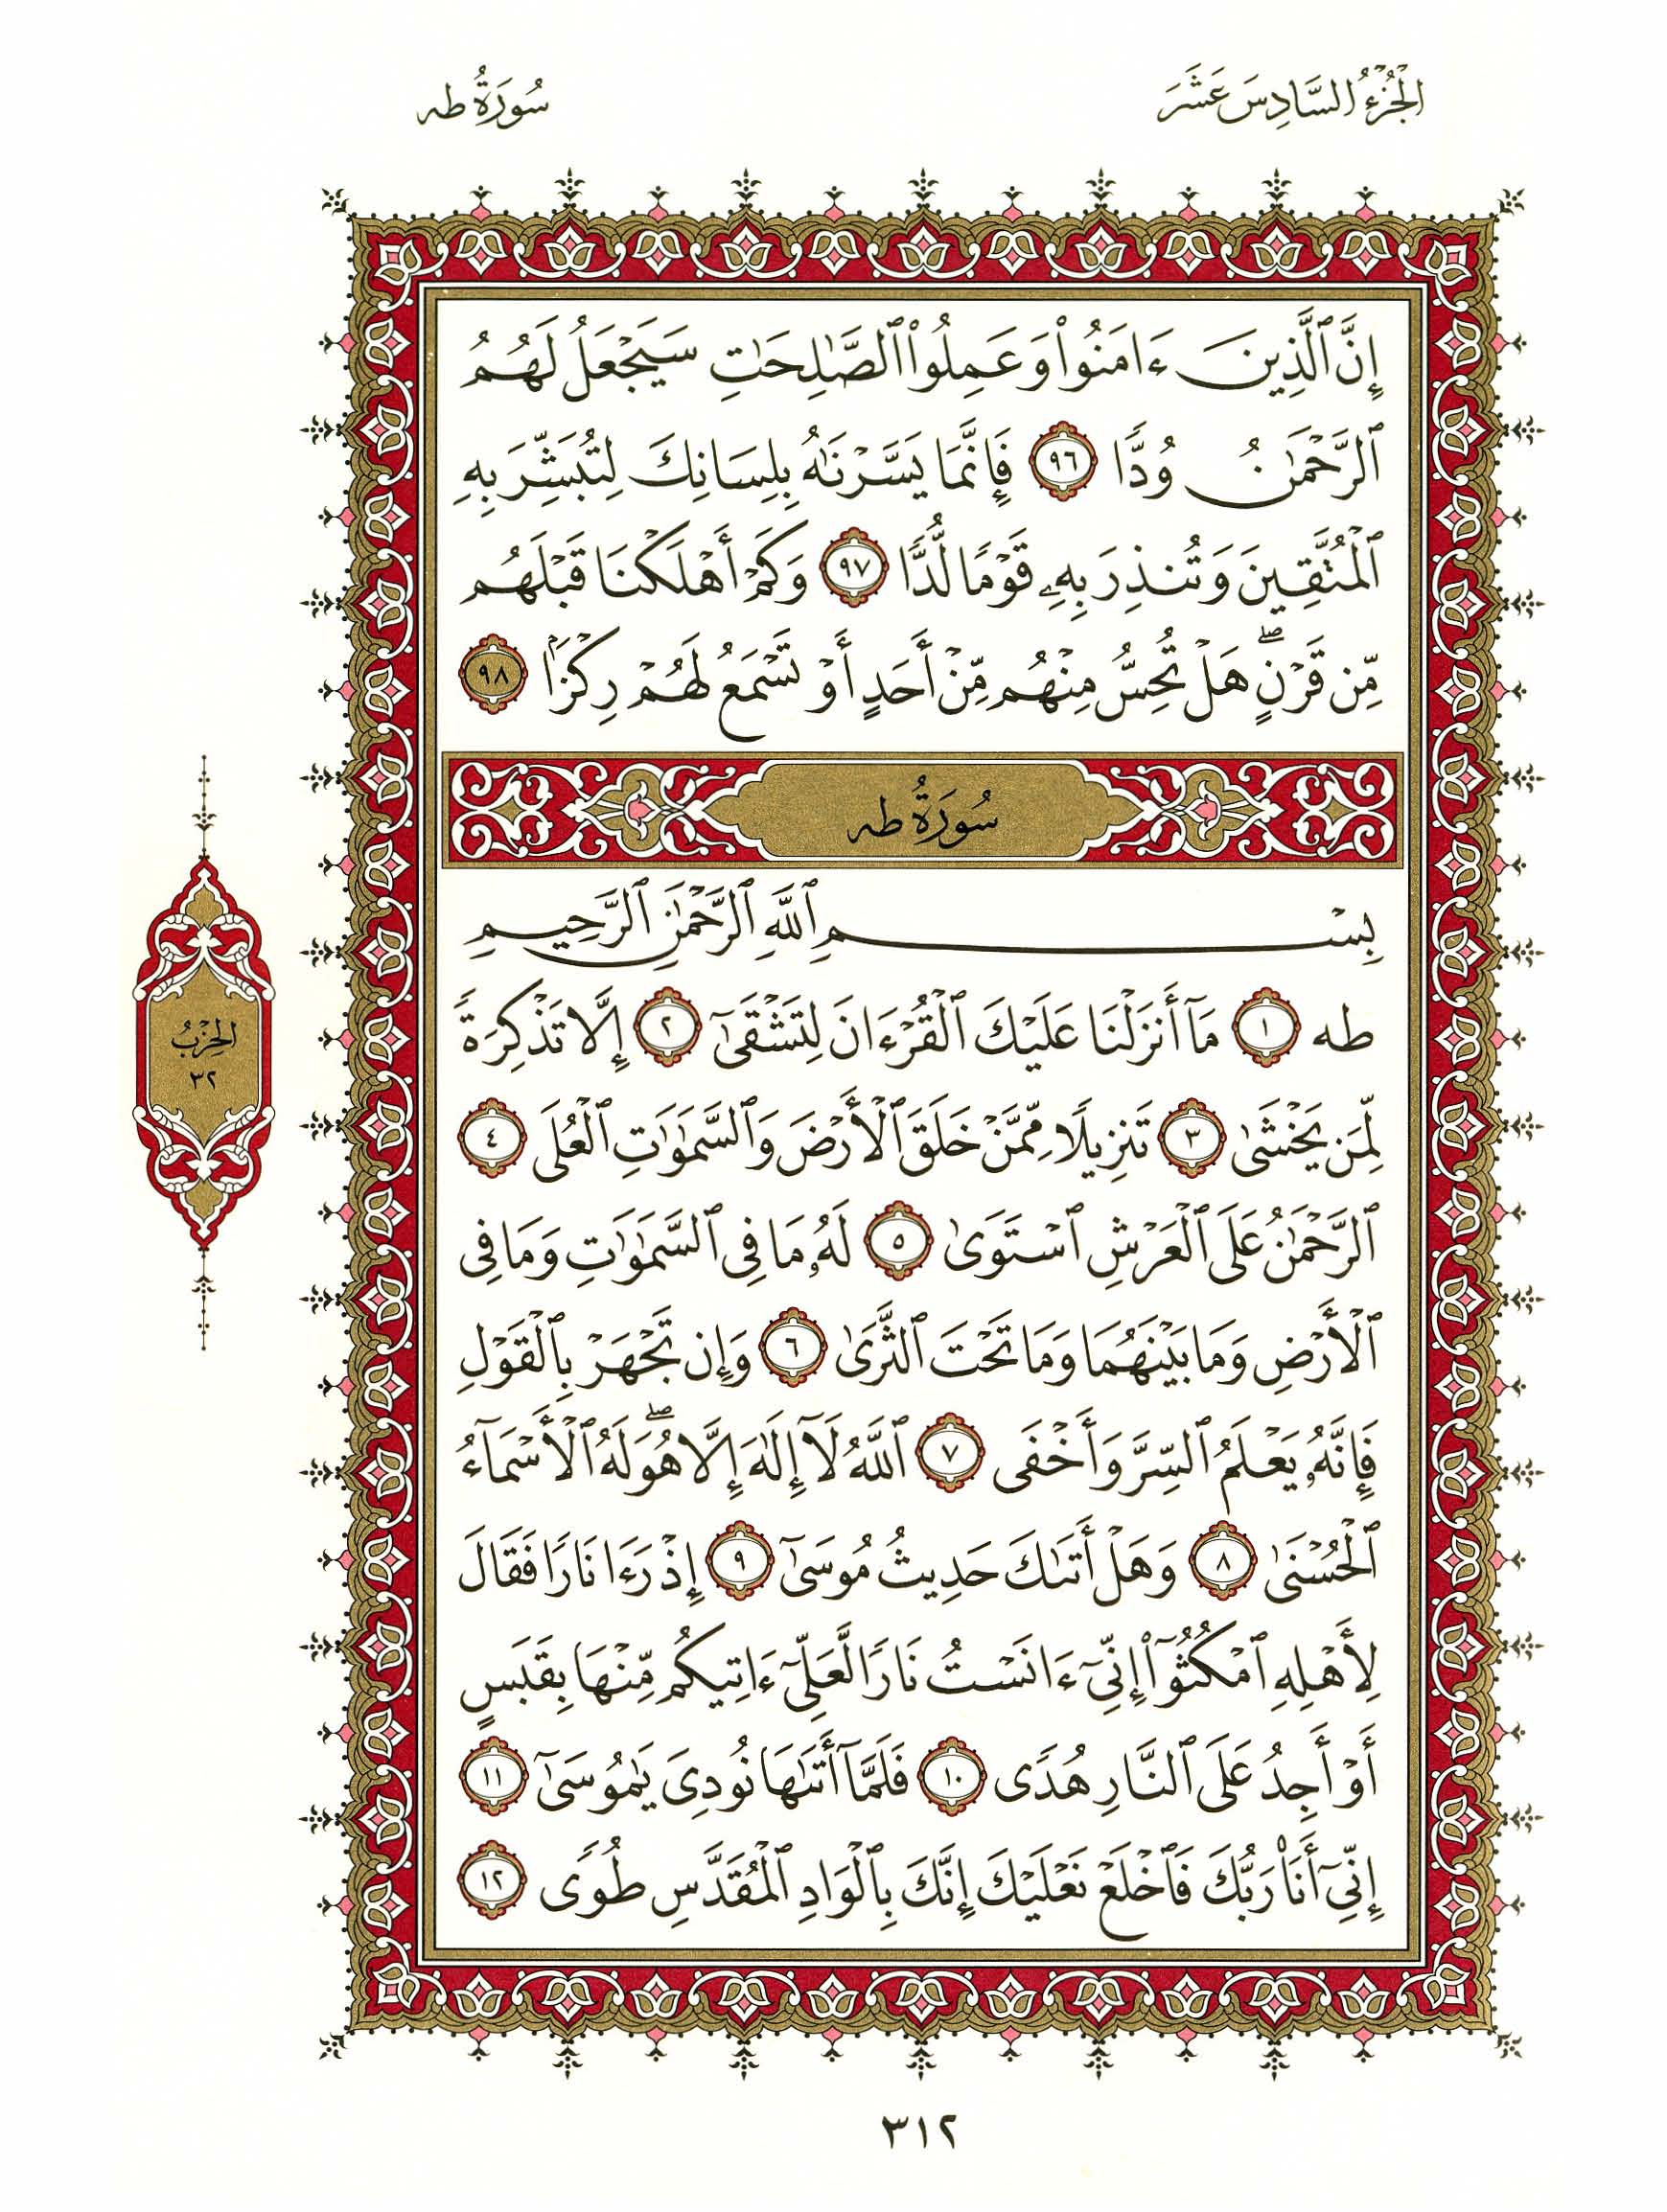 الْجُزْءُ السَّادِسَ عَشَرَ
سُورَةُ طه
إِنَّ ٱلَّذِينَ ءَامَنُوا۟ وَعَمِلُوا۟ ٱلصَّٰلِحَٰتِ سَيَجْعَلُ لَهُمُ
ٱلرَّحْمَٰنُ وُدًّا ٩٦ فَإِنَّمَا يَسَّرْنَٰهُ بِلِسَانِكَ لِتُبَشِّرَ بِهِ
ٱلْمُتَّقِينَ وَتُنذِرَ بِهِۦ قَوْمًا لُّدًّا ٩٧ وَكَمْ أَهْلَكْنَا قَبْلَهُم
مِّن قَرْنٍ ۖ هَلْ تُحِسُّ مِنْهُم مِّنْ أَحَدٍ أَوْ تَسْمَعُ لَهُمْ رِكْزَۢا ٩٨
سُورَةُ طه
بِسْمِ ٱللَّهِ ٱلرَّحْمَٰنِ ٱلرَّحِيمِ
طه ١ مَآ أَنزَلْنَا عَلَيْكَ ٱلْقُرْءَانَ لِتَشْقَىٰٓ ٢ إِلَّا تَذْكِرَةً
لِّمَن يَخْشَىٰ ٣ تَنزِيلًا مِّمَّنْ خَلَقَ ٱلْأَرْضَ وَٱلسَّمَٰوَٰتِ ٱلْعُلَى ٤
ٱلرَّحْمَٰنُ عَلَى ٱلْعَرْشِ ٱسْتَوَىٰ ٥ لَهُۥ مَا فِى ٱلسَّمَٰوَٰتِ وَمَا فِى
ٱلْأَرْضِ وَمَا بَيْنَهُمَا وَمَا تَحْتَ ٱلثَّرَىٰ ٦ وَإِن تَجْهَرْ بِٱلْقَوْلِ
فَإِنَّهُۥ يَعْلَمُ ٱلسِّرَّ وَأَخْفَى ٧ ٱللَّهُ لَآ إِلَٰهَ إِلَّا هُوَ ۖ لَهُ ٱلْأَسْمَآءُ
ٱلْحُسْنَىٰ ٨ وَهَلْ أَتَىٰكَ حَدِيثُ مُوسَىٰٓ ٩ إِذْ رَءَا نَارًا فَقَالَ
لِأَهْلِهِ ٱمْكُثُوٓا۟ إِنِّىٓ ءَانَسْتُ نَارًا لَّعَلِّىٓ ءَاتِيكُم مِّنْهَا بِقَبَسٍ
أَوْ أَجِدُ عَلَى ٱلنَّارِ هُدًى ١٠ فَلَمَّآ أَتَىٰهَا نُودِىَ يَٰمُوسَىٰٓ ١١
إِنِّىٓ أَنَا۠ رَبُّكَ فَٱخْلَعْ نَعْلَيْكَ إِنَّكَ بِٱلْوَادِ ٱلْمُقَدَّسِ طُوًى ١٢
الحِزْبُ
٣٢
٣١٢